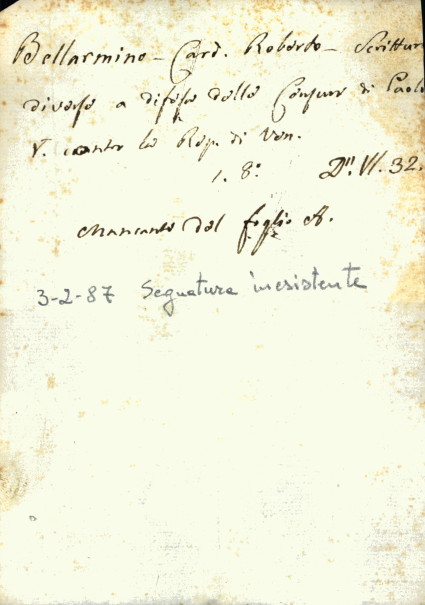 Bellarmino - Card. Roberto - Scritture
diverse a difesa delle Censure di Paolo
V. contro la Rep. di Ven.
1. 8.° D". VI. 32.
Mancante del foglio A.
3-2-87 Segnatura inesistente